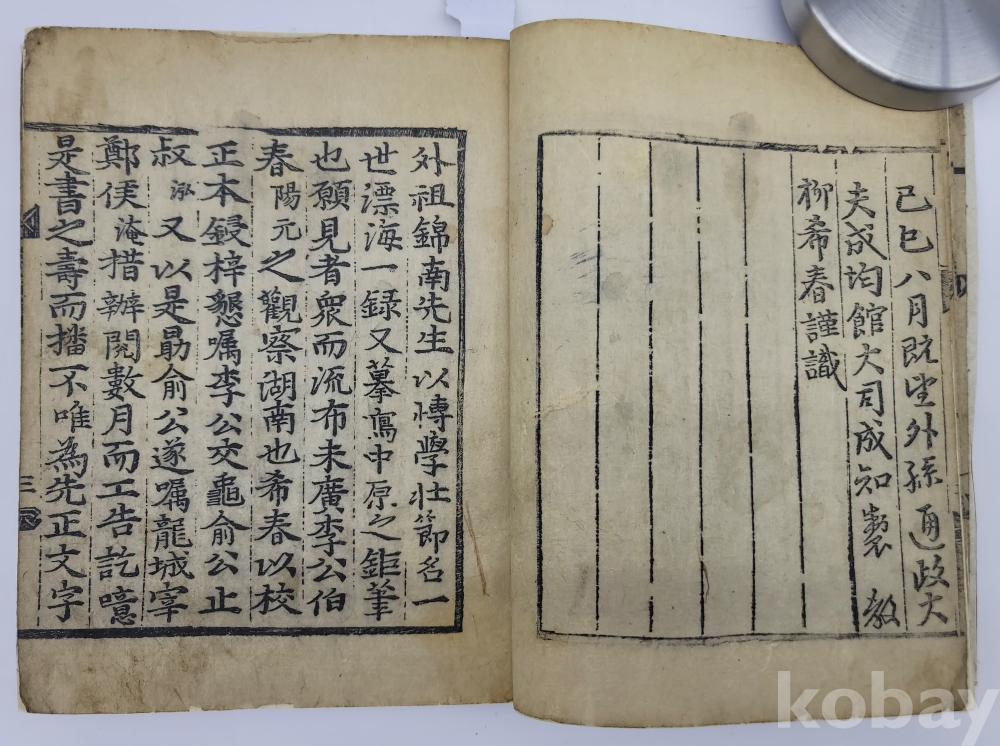 己巳八月旣望外孫通政大
夫成均館大司成知製 教
柳希春謹識
外祖錦南先生以博學壯節名一
世漂海一録又摹寫中原之鉅筆
也願見者衆而流布未廣李公伯
春陽元之觀察湖南也希春以校
正本鋟梓懇嘱李公交龜俞公止
叔泓又以是勗俞公遂嘱龍城宰
鄭侯淹措辦閲數月而工告訖噫
是書之壽而播不唯為先正文字
三
kobay